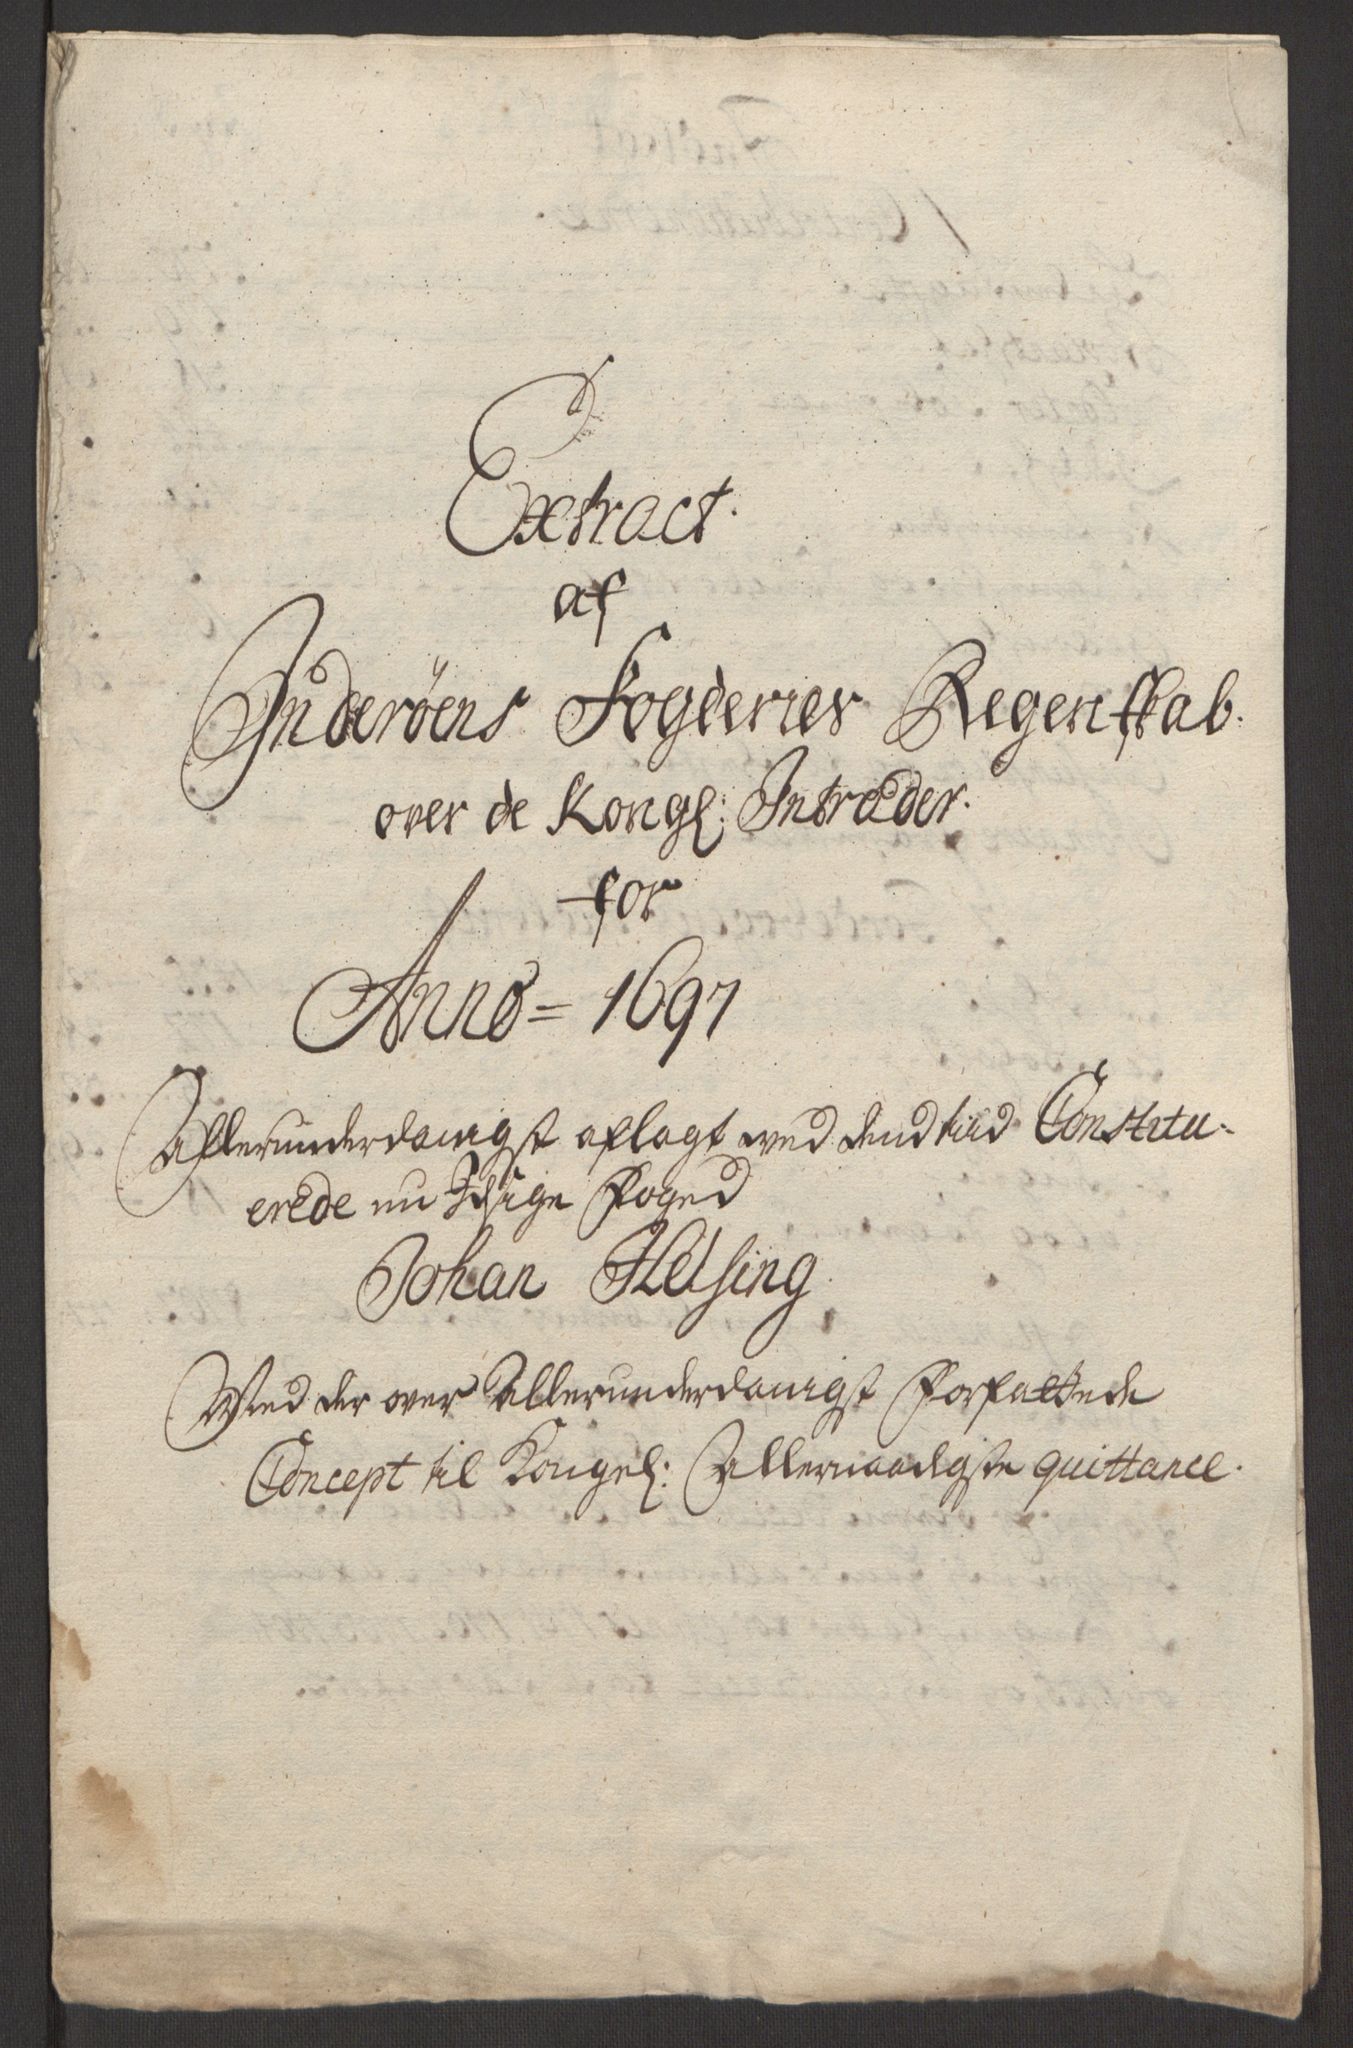 Extract.
af
Inderöens Fogderies Regenskab.
over de Kongl: Intrader.
for
Anno = 1697
Allerunderdanigst aflagt wed dend tiid Constitu-
erede nu Förige Foged
Johan Helsing.
Med der over Allerunderdanigst Forfattede
Concept til Kongel: Allernaadigste quittance.